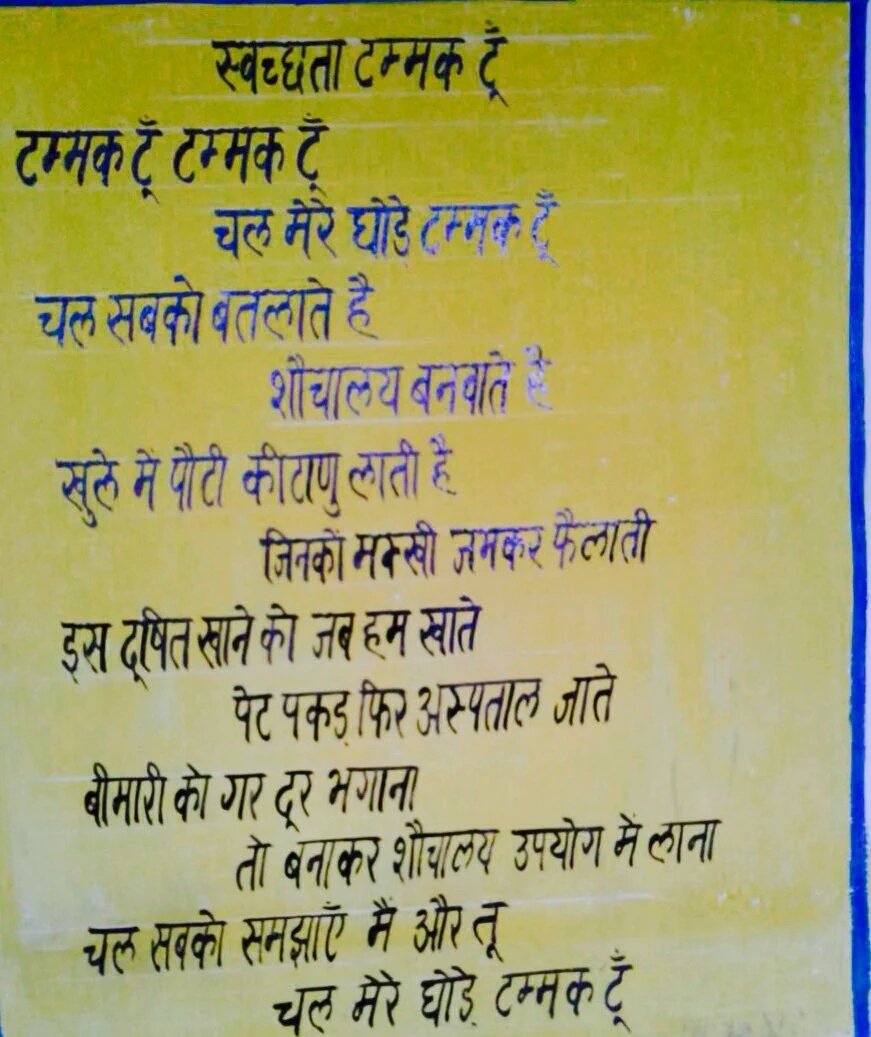 स्वच्छता टम्मक टूँ
टम्मक टूँ टम्मक टूँ
चल मेरे घोड़े टम्मक टूँ
चल सबको बतलाते है
शौचालय बनवाते है
खुले में पौटी कीटाणु लाती है
जिनको मक्खी जमकर फैलाती
इस दूषित खाने को जब हम खाते
पेट पकड़ फिर अस्पताल जाते
बीमारी को गर दूर भगाना
तो बनाकर शौचालय उपयोग में लाना
चल सबको समझाएँ मैं और तू
चल मेरे घोड़े टम्मक टूँ